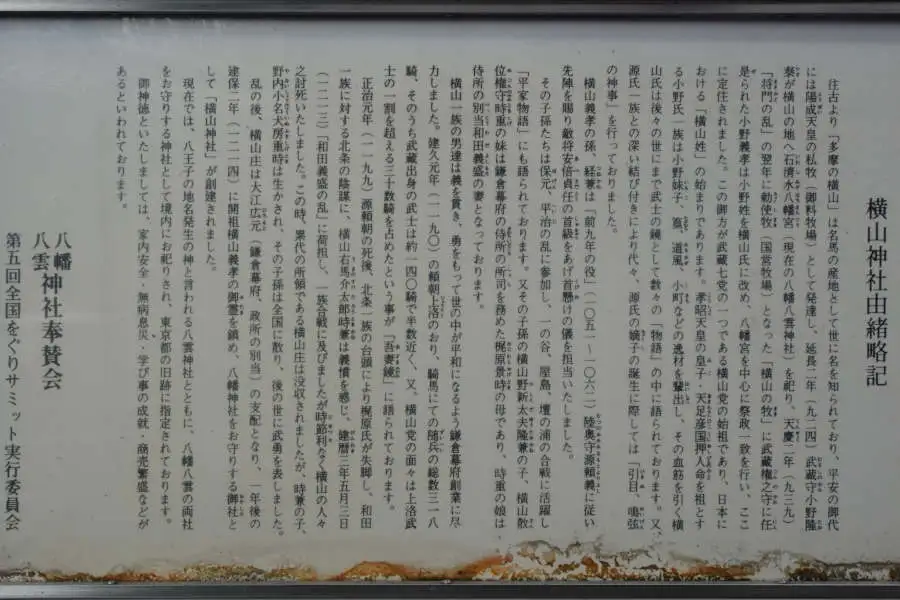 横山神社由緒略記
往古より「多摩の横山」は名馬の産地として世に名を知られており、平安の御代
には陽成天皇の私牧（御料牧場）として発達し、延長二年（九二四）武蔵守小野隆
泰が横山の地へ石清水八幡宮（現在の八幡八雲神社）を祀り、天慶二年（九三九）
「将門の乱」の翌年に勅使牧（国営牧場）となった「横山の牧」に武蔵権之守に任
是られた小野義孝は小野姓を横山氏に改め、八幡宮を中心に祭政一致を行い、ここ
に定住されました。この御方が武蔵七党の一つである横山党の始祖であり、日本に
おける「横山姓」の始まりであります。孝昭天皇の皇子・天足彦国押人命を祖とす
る小野氏一族は小野妹子、篁、道風、小町などの逸材を輩出し、その血筋を引く横
山氏は後々の世にまで武士の鏡として数々の「物語」の中に語られております。又、
源氏一族との深い結び付きにより代々、源氏の嫡子の誕生に際しては「引目、鳴弦
の神事」を行っておりました。
横山義孝の孫、経兼は「前九年の役」（一〇五一〜一〇六二）陸奥守源頼義に従い
先陣を賜り敵将安倍貞任の首級をあげ首懸けの儀を担当いたしました。
その子孫たちは保元、平治の乱に参加し、一の谷、屋島、壇の浦の合戦に活躍し
「平家物語」にも語られております。又その子孫の横山野新太夫隆兼の子、横山散
位権守時重の妹は鎌倉幕府の侍所の所司を務めた梶原景時の母であり、時重の娘は
侍所の別当和田義盛の妻となっております。
横山一族の男達は義を貫き、勇をもって世の中が平和になるよう鎌倉幕府創業に尽
力しました。建久元年（一一九〇）の頼朝上洛のおり、騎馬にての随兵の総数三一八
騎、そのうち武蔵出身の武士は約一四〇騎で半数近く、又、横山党の面々は上洛武
士の一割を超える三十数騎を占めたという事が「吾妻鏡」に語られております。
正治元年（一一九九）源頼朝の死後、北条一族の台頭により梶原氏が失脚し、和田
一族に対する北条の陰謀に、横山右馬介太郎時兼は義憤を感じ、建暦三年五月三日
（一二一三）「和田義盛の乱」に荷担し、一族合戦に及びましたが時節利なく横山の人々
之討死いたしました。この時、累代の所領である横山庄は没収されましたが、時兼の子、
野内小次犬房重時は生かされ、その子孫は全国に散り、後の世に武勇を表しました。
乱の後、横山庄は大江広元（鎌倉幕府、政所の別当）の支配となり、一年後の
建保二年（一二一四）に開祖横山義孝の御霊を鎮め、八幡神社をお守りする御社と
して「横山神社」が創建されました。
現在では、八王子の地名発生の神と言われる八雲神社とともに、八幡八雲の両社
をお守りする神社として境内にお祀りされ、東京都の旧跡に指定されております。
御神徳といたしましては、家内安全・無病息災・学び事の成就・商売繁盛などが
あるといわれております。
八幡
八雲 神社奉賛会
第五回全国をぐりサミット実行委員会